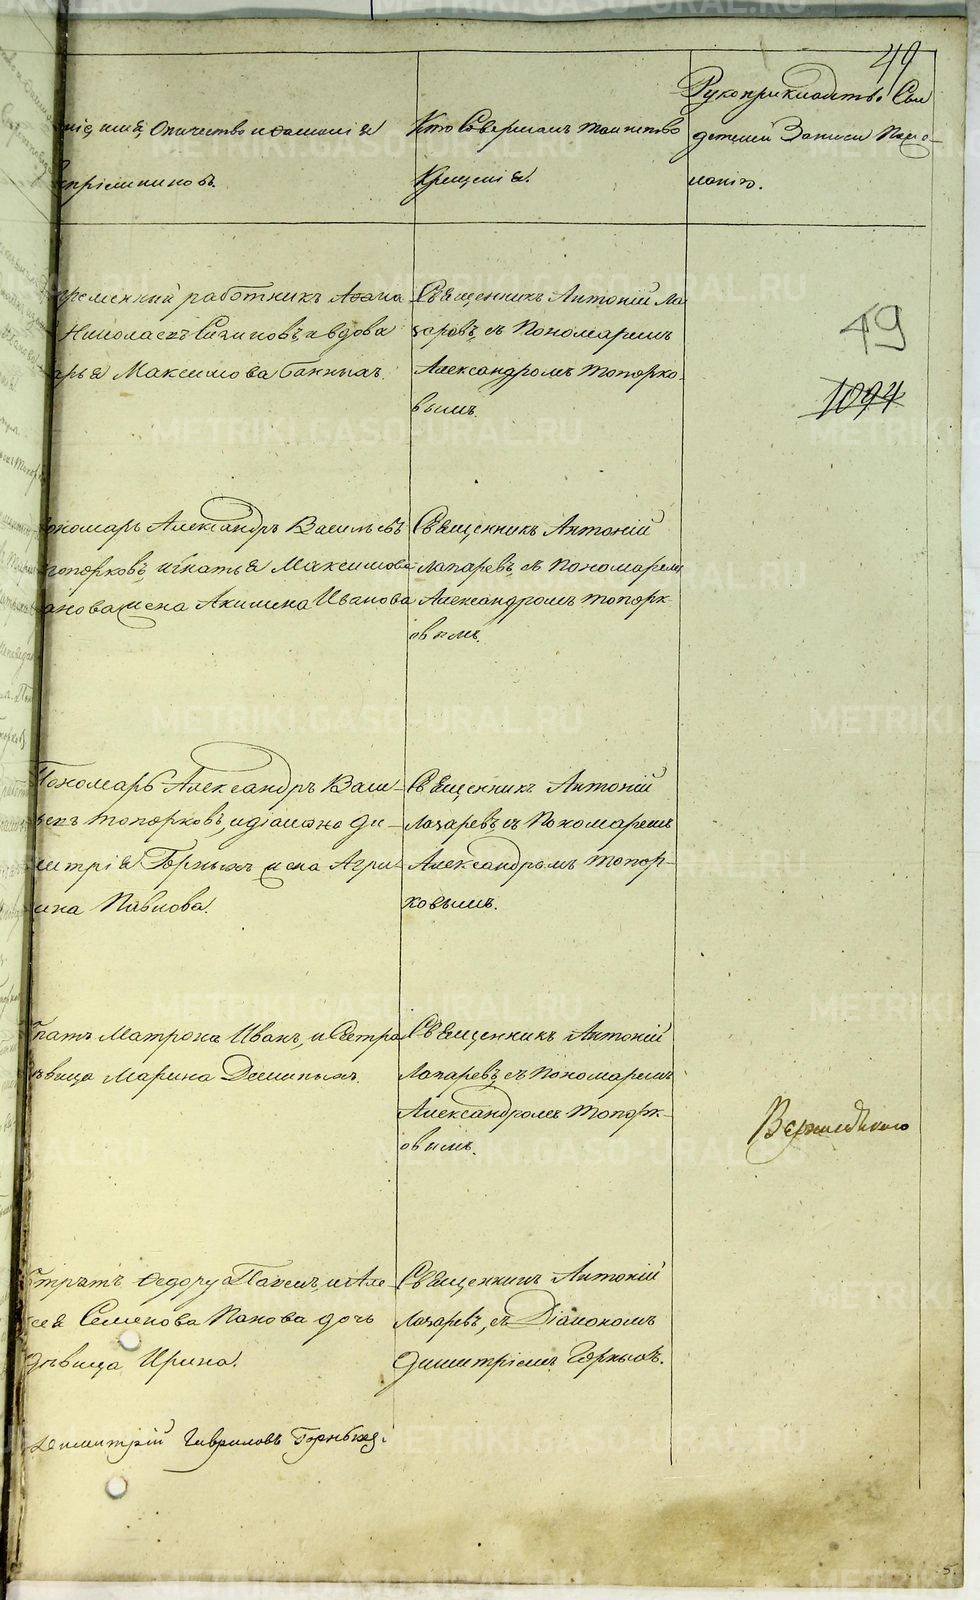 49
ніе, имя, Отчество и фамилія
воспріемниковъ.
Кто Совершалъ таинство
Крещенія.
Рукоприкладство Сви
детелей Записи По же-
ланію.
49
1094
временный работникъ
Николаевъ и вдова
Дарья Максимова Банныхъ.
Священникъ Антоній Ла
заревъ, съ Пономаремъ
Александромъ Топорко-
вымъ.
Пономарь Александръ Васильевъ
Топорковъ, Игнатья Максимова
жена Акилина Иванова
Священникъ Антоній
Лазаревъ, съ Пономаремъ
Александромъ Топорк-
овымъ.
Пономарь Александръ Васи-
льевъ Топорковъ, и діакона Ди-
митрія Горныхъ жена Агри-
пина Павлова.
Священникъ Антоній
Лазаревъ съ Пономаремъ
Александромъ Топор-
ковымъ.
Братъ Матроны Иванъ, и Сестра
дѣвица Марина Деминыхъ.
Священникъ Антоній
Лазаревъ, съ Пономаремъ
Александромъ Топорк-
овымъ.
Братъ Федору Павелъ, и Але-
ксея Семенова Панова дочь
дѣвица Ирина.
Священникъ Антоній
Лазаревъ, съ Діакономъ
Димитріемъ Горныхъ.
Димитрій Гавриловъ Горныхъ.
5.
METRIKI.GASO-URAL.RU